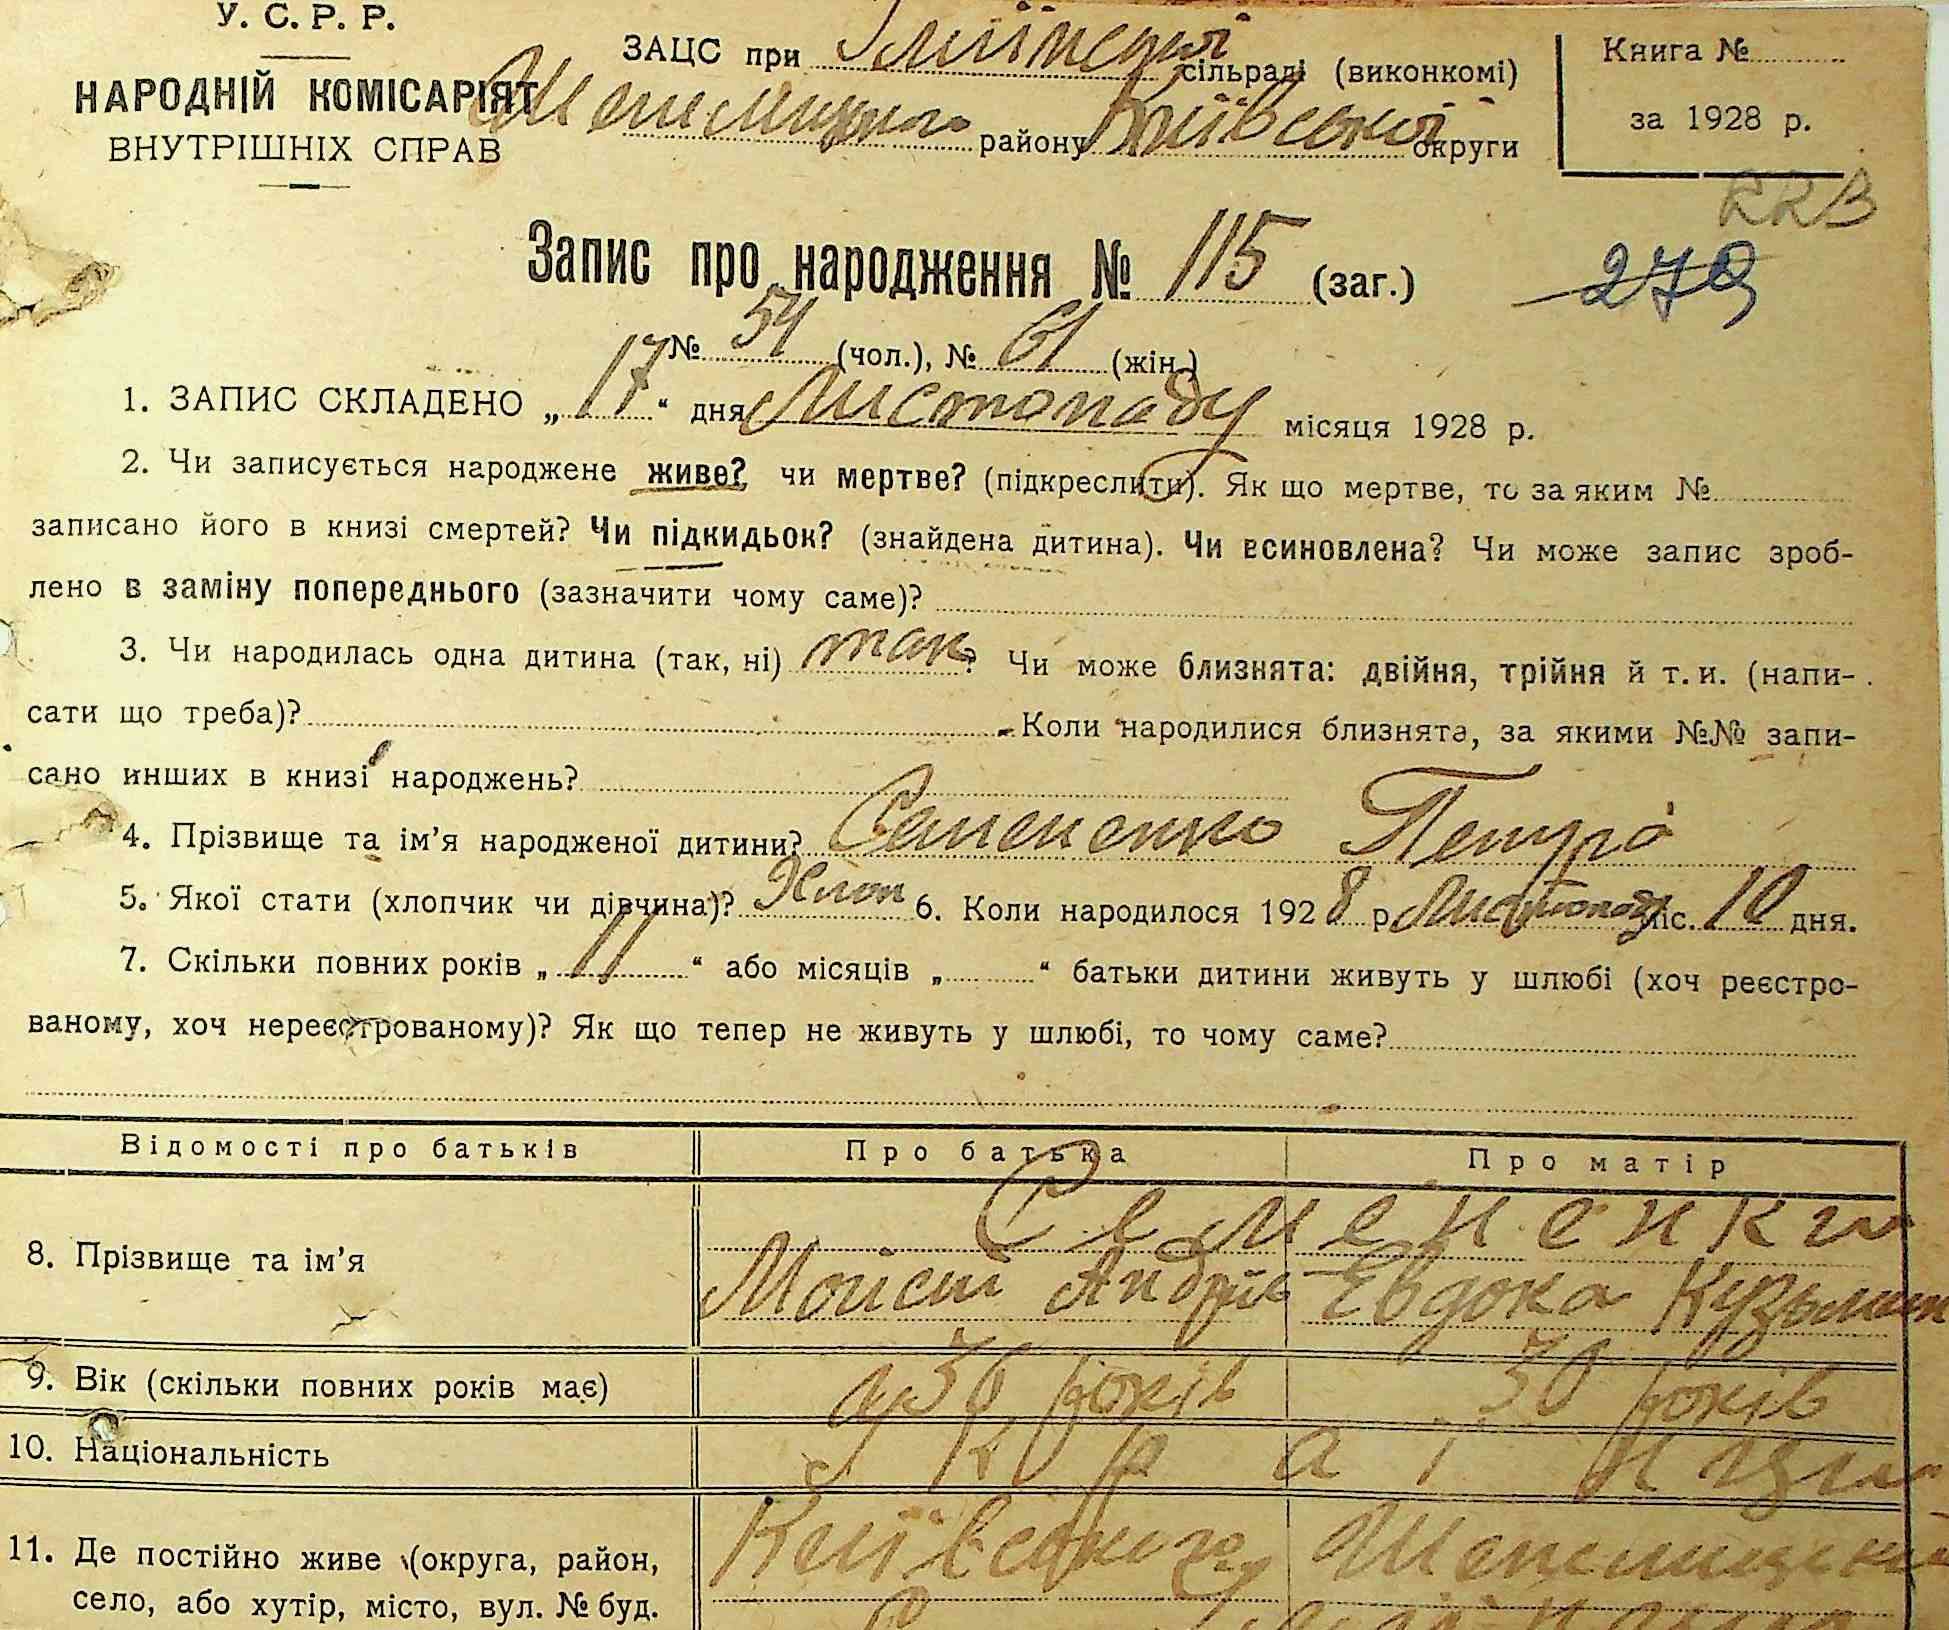 У. С. Р. Р.
НАРОДНІЙ КОМІСАРІЯТ
ВНУТРІШНІХ СПРАВ
ЗАЦС при сільраді (виконкомі)
Шепелицького району Київської округи
Книга №
за 1928 р.
RRB
279
Запис про народження № 115 (заг.)
№ 54 (чол.), № 61 (жін.)
1. ЗАПИС СКЛАДЕНО „ 17 “ дня Листопаду місяця 1928 р.
2. Чи записується народжене живе? чи мертве? (підкреслити). Як що мертве, то за яким №
записано його в книзі смертей? Чи підкидьок? (знайдена дитина). Чи всиновлена? Чи може запис зроб-
лено в заміну попереднього (зазначити чому саме)?
3. Чи народилась одна дитина (так, ні) так? Чи може близнята: двійня, трійня й т. и. (напи-
сати що треба)? Коли народилися близнята, за якими №№ запи-
сано инших в книзі народжень?
4. Прізвище та ім’я народженої дитини? Семененко Петро
5. Якої стати (хлопчик чи дівчина)? Хлоп 6. Коли народилося 1928 р. Листопаду міс. 10 дня.
7. Скільки повних років „ 11 “ або місяців „ “ батьки дитини живуть у шлюбі (хоч реєстро-
ваному, хоч нереєстрованому)? Як що тепер не живуть у шлюбі, то чому саме?
Відомості про батьків Про батька Про матір
8. Прізвище та ім’я Семененки
Мойсей Андріїв Евдока Кузьмин
9. Вік (скільки повних років має) 36 років 30 років
10. Національність українци
11. Де постійно живе (округа, район, Київського Шепелицький
село, або хутір, місто, вул. № буд.